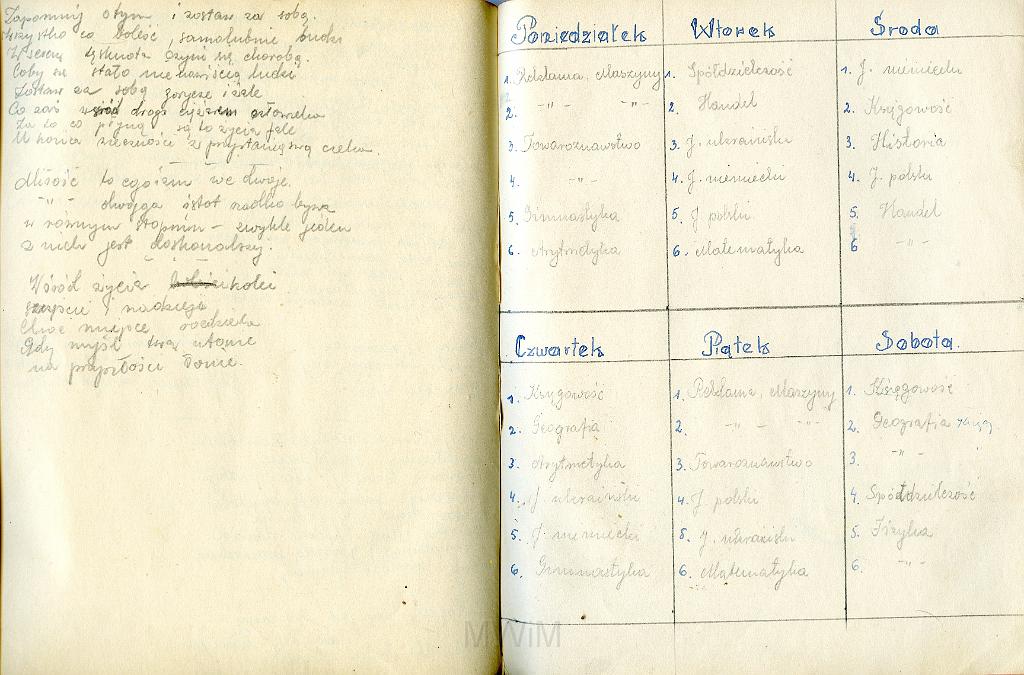 Zapomnij o tym i zostaw za sobą.
Wszystko co boleść, samolubnie budzi
W sercu, tęsknota czyni się chorobą.
Coby się stało nienawiścią ludzi
Zostaw za sobą gorycze i żale
Co zaś wśród drogi człowieka
Za to co płyną są to życia fale
U końca wieczności z przystanią swą czeka.
Miłość to egoizm we dwoje.
-"- dwojga istot rzadko bywa
w różnym stopniu - zwykle jeden
z nich jest doskonalszy.
Wśród życia kolei
szczęście i nadzieja
Chwe miejsce rozdziela
Gdy myśl twą utonie
na przyszłości łonie.
Poniedziałek
1. Reklama, Maszyny
2. -"- -"-
3. Towaroznawstwo
4. -"-
5. Gimnastyka
6. Arytmetyka
Wtorek
1. Spółdzielczość
2. Handel
3. J. ukraiński
4. J. niemiecki
5. J. polski
6. Matematyka
Środa
1. J. niemiecki
2. Księgowość
3. Historia
4. J. polski
5. Handel
6 -"-
Czwartek
1. Księgowość
2. Geografia
3. Arytmetyka
4. J. ukraiński
5. J. niemiecki
6. Gimnastyka
Piątek
1. Reklama, Maszyny
2. -"- -"-
3. Towaroznawstwo
4. J. polski
5. J. ukraiński
6. Matematyka
Sobota.
1. Księgowość
2. Geografia
3. -"-
4. Spółdzielczość
5. Fizyka
6. -"-
MWiM